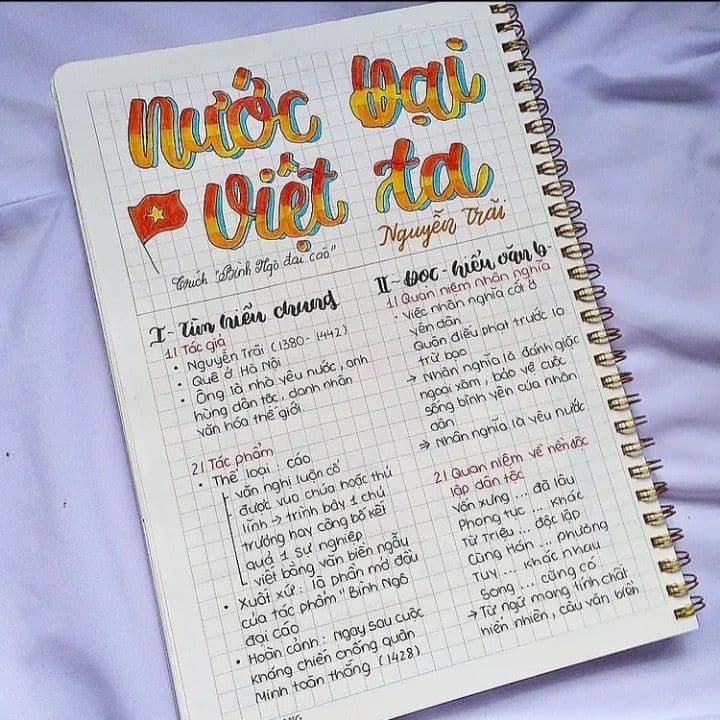 Nước Đại
Việt ta
Nguyễn Trãi
Trích "Bình Ngô đại cáo"
I - Tìm hiểu chung
1) Tác giả
• Nguyễn Trãi (1380 - 1442)
• Quê ở Hà Nội
• Ông là nhà yêu nước, anh
hùng dân tộc, danh nhân
văn hóa thế giới.
2) Tác phẩm
• Thể loại: cáo
văn nghị luận cổ
được vua chúa hoặc thủ
lĩnh → trình bày 1 chủ
trương hay công bố kết
quả 1 sự nghiệp
viết bằng văn biền ngẫu
• Xuất xứ: là phần mở đầu
của tác phẩm "Bình Ngô
đại cáo
• Hoàn cảnh: Ngay sau cuộc
kháng chiến chống quân
Minh toàn thắng (1428)
II - Đọc - hiểu văn b-
1) Quan niệm nhân nghĩa
• Việc nhân nghĩa cốt ở
yên dân
Quân điếu phạt trước lo
trừ bạo
→ Nhân nghĩa là đánh giặc
ngoại xâm, bảo vệ cuộc
sống bình yên của nhân
dân
→ Nhân nghĩa là yêu nước
2) Quan niệm về nền độc
lập dân tộc
Vốn xưng ... đã lâu
Phong tục ... khác
Từ Triệu ... độc lập
Cùng Hán ... phương
Tuy ... khác nhau
Song ... cũng có
→ Từ ngữ mang tính chất
hiển nhiên, câu văn biền